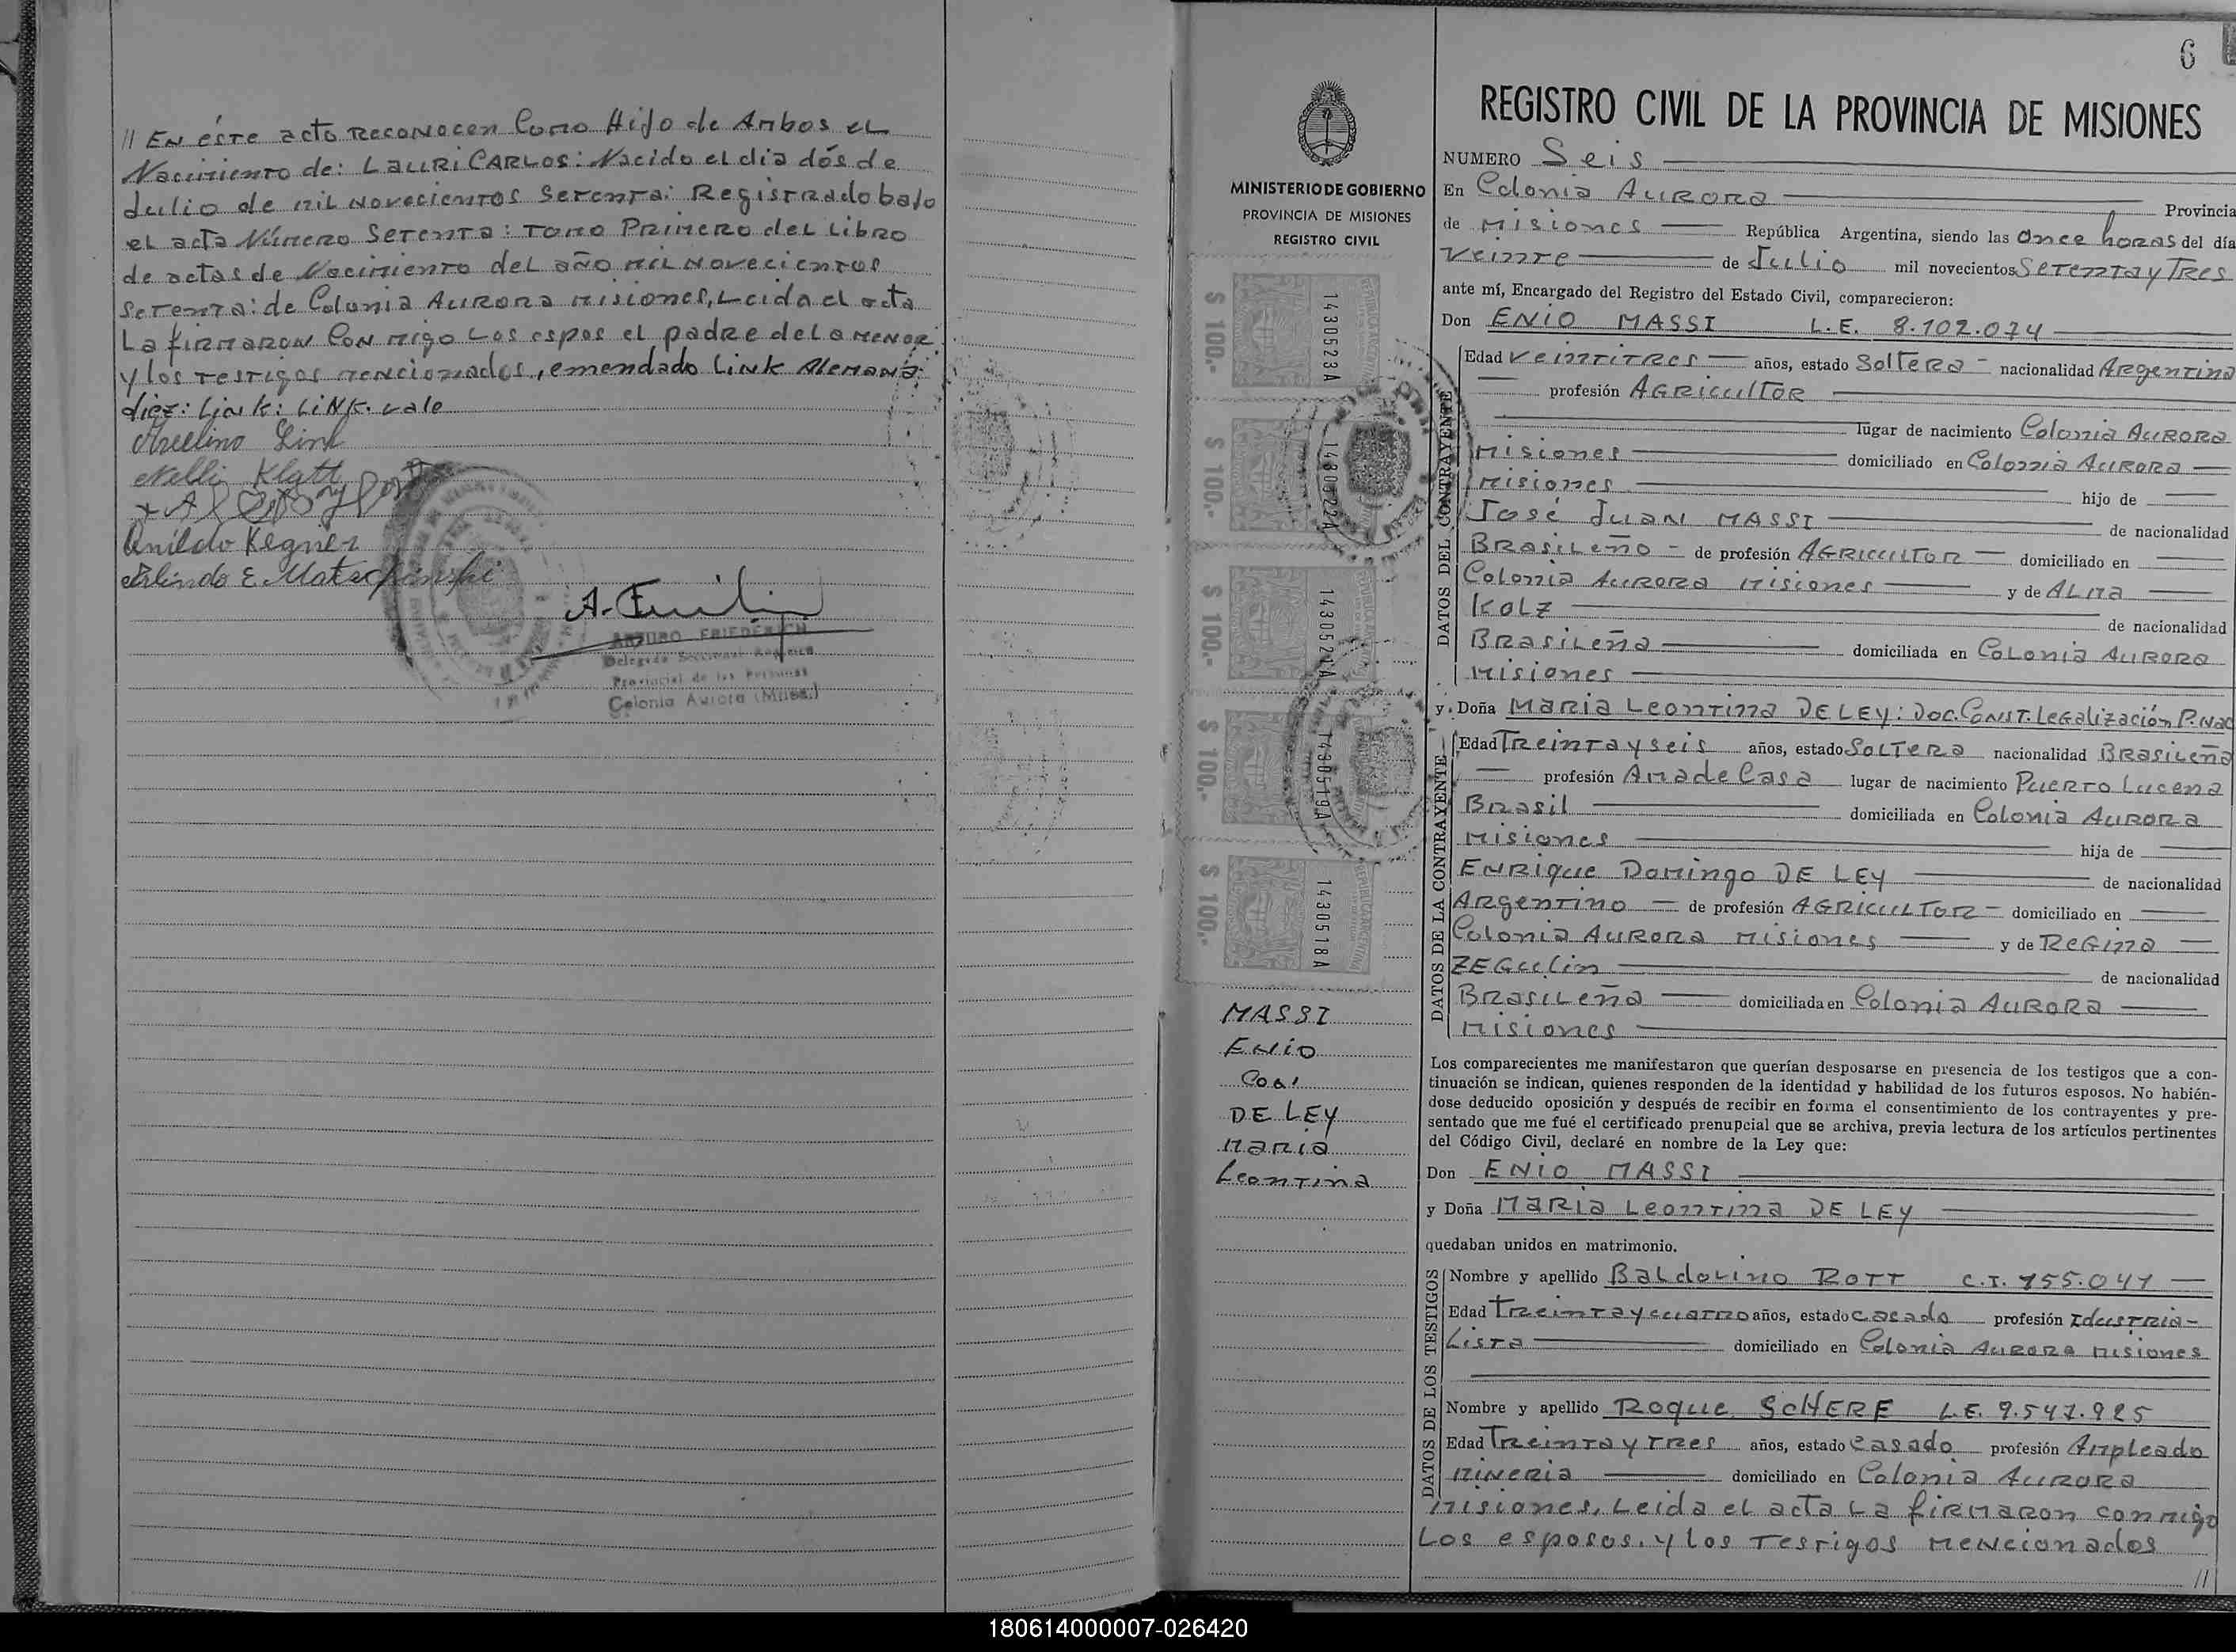 // En éste acto Reconocen Como Hijo de Ambos el
Nacimiento de: LAURI CARLOS: Nacido el dia dós de
Julio de mil novecientos setenta: Registrado bajo
el acta Número Setenta: Tomo Primero del Libro
de actas de Nacimiento del año mil novecientos
Setenta: de Colonia Aurora Misiones, Leida el acta
La firmaron Con migo Los espos el padre de la menor
y los testigos mencionados, emendado Link Alemana:
diez: Link: LiNK. vale
Avelino Link
Nelli Klatt
Anildo Kegner
A. Friedrich
ARTURO FRIEDERICH
Delegado Seccional Registro
Provincial de las Personas
Colonia Aurora (Mnes.)
6
REGISTRO CIVIL DE LA PROVINCIA DE MISIONES
MINISTERIO DE GOBIERNO
PROVINCIA DE MISIONES
REGISTRO CIVIL
$ 100.- 1430523A
$ 100.- 1430522A
$ 100.- 1430521A
$ 100.- 1430519A
$ 100.- 1430518A
MASSI
ENIO
Con
DE LEY
MARIA
Leontina
NUMERO Seis
En Colonia Aurora Provincia
de Misiones República Argentina, siendo las Once horas del día
Veinte de Julio mil novecientos Setenta y Tres
ante mí, Encargado del Registro del Estado Civil, comparecieron:
Don ENIO MASSI L.E. 8.102.074
DATOS DEL CONTRAYENTE
Edad Veintitres años, estado Soltero nacionalidad Argentina
profesión AGRICULTOR
lugar de nacimiento Colonia Aurora
Misiones domiciliado en Colonia Aurora
Misiones hijo de
José Juan MASSI de nacionalidad
Brasileño de profesión AGRICULTOR domiciliado en
Colonia Aurora Misiones y de ALMA
KOLZ de nacionalidad
Brasileña domiciliada en Colonia Aurora
Misiones
y Doña Maria Leontina DE LEY: Doc. Const. Legalización P. Nac
DATOS DE LA CONTRAYENTE
Edad Treinta y seis años, estado Soltera nacionalidad Brasileña
profesión Ama de Casa lugar de nacimiento Puerto Lucena
Brasil domiciliada en Colonia Aurora
Misiones hija de
Enrique Domingo DE LEY de nacionalidad
Argentino de profesión AGRICULTOR domiciliado en
Colonia Aurora Misiones y de Regina
ZEGulin de nacionalidad
Brasileña domiciliada en Colonia Aurora
Misiones
Los comparecientes me manifestaron que querían desposarse en presencia de los testigos que a con-
tinuación se indican, quienes responden de la identidad y habilidad de los futuros esposos. No habién-
dose deducido oposición y después de recibir en forma el consentimiento de los contrayentes y pre-
sentado que me fué el certificado prenupcial que se archiva, previa lectura de los artículos pertinentes
del Código Civil, declaré en nombre de la Ley que:
Don ENIO MASSI
y Doña Maria Leontina DE LEY
quedaban unidos en matrimonio.
DATOS DE LOS TESTIGOS
Nombre y apellido Baldovino ROTT C.I. 155.041
Edad Treinta y cuatro años, estado casado profesión Idustria-
Lista domiciliado en Colonia Aurora Misiones
Nombre y apellido Roque SCHERE L.E. 9.547.925
Edad Treinta y Tres años, estado casado profesión Ampleado
Mineria domiciliado en Colonia Aurora
Misiones, Leida el acta La firmaron conmigo
Los esposos, y los Testigos mencionados
//
180614000007-026420